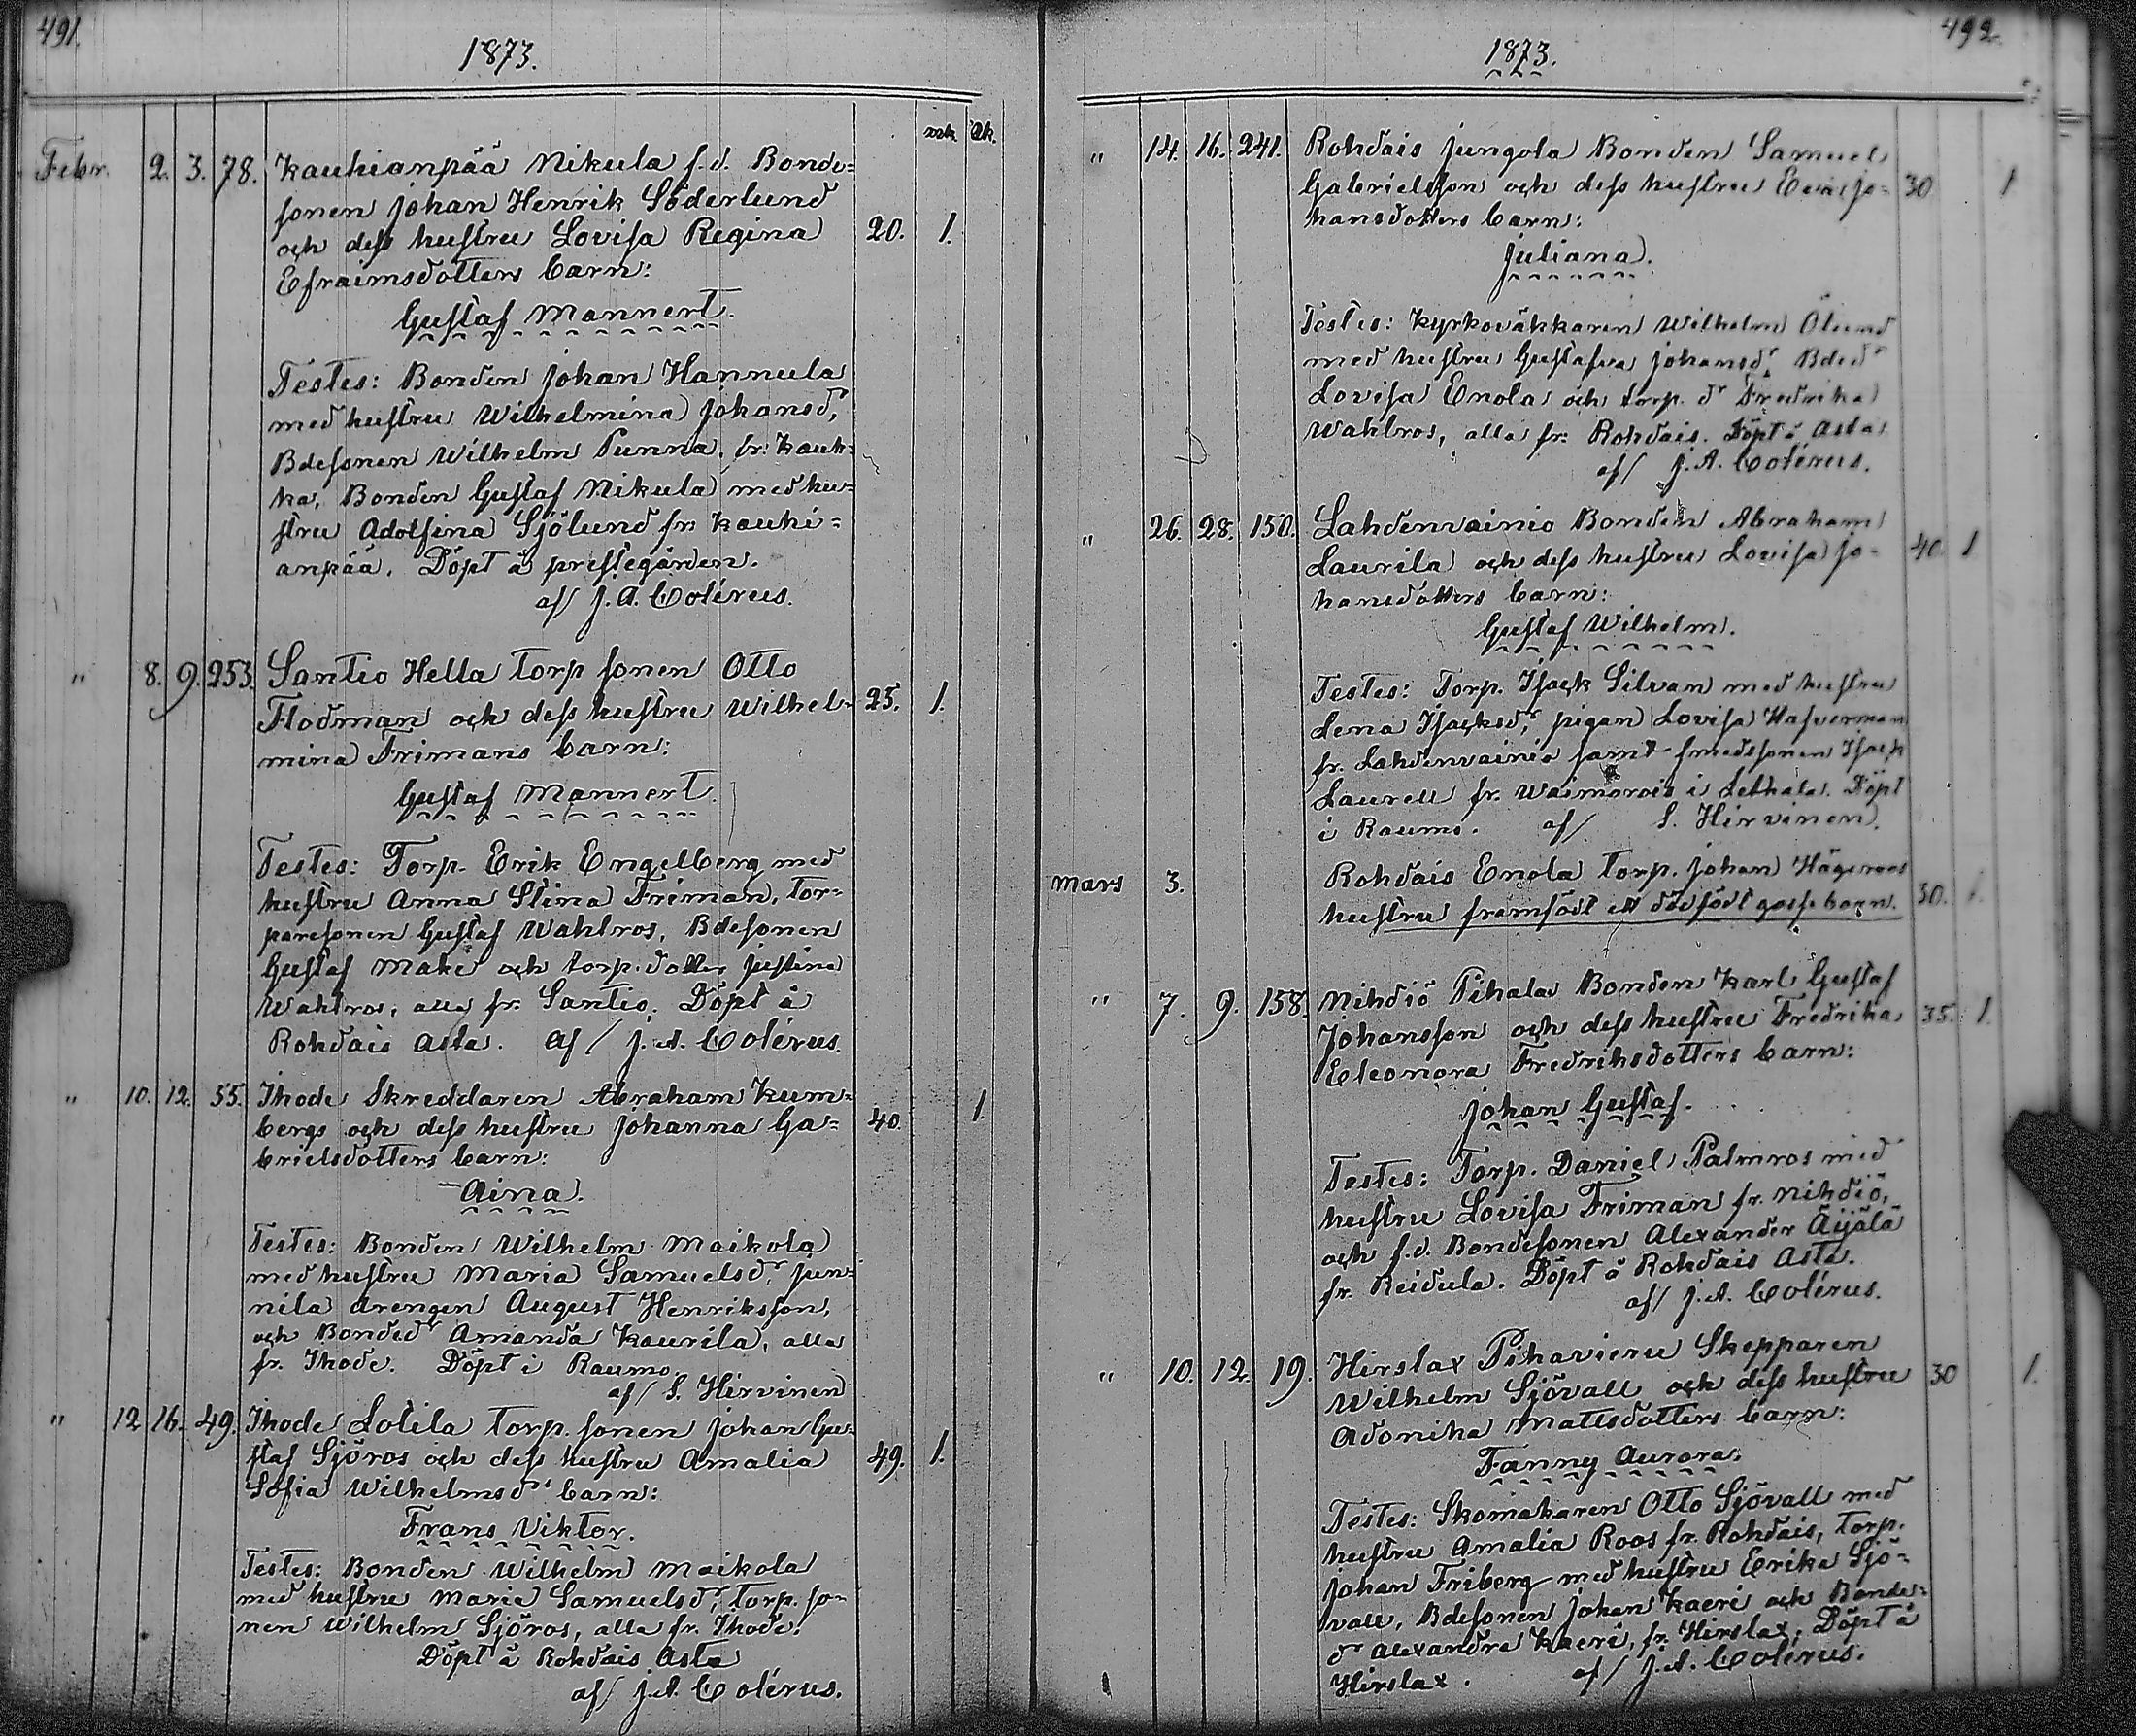 491.
1873.
mk æk.
Febr. 2. 3. 78. Kauhianpää Nikula f.d. Bonde-
sonen Johan Henrik Söderlund
och dess hustru Lovisa Regina 20. 1.
Efraimsdotters barn:
Gustaf Mannert.
Testes: Bonden Johan Hannula
med hustru Wilhelmina Johansdr,
Bdesonen Wilhelm Punna, fr: Kauk-
ka, Bonden Gustaf Nikula med hu-
stru Adolfina Sjölund fr: Kauhi-
anpää. Döpt å prestegården.
af/ J.A. Colérus.
" 8. 9. 253. Santio Hella Torp sonen Otto
Flodman och dess hustru Wilhel- 25. 1.
mina Frimans barn:
Gustaf Mannert.
Testes: Torp. Erik Engelberg med
hustru Anna Stina Friman, Tor-
paresonen Gustaf Wahlros, Bdesonen
Gustaf Maki och torp. dotter Justina
Wahlros, alla fr. Santio. Döpt å
Rohdais Asta. af/ J.A. Colérus.
" 10. 12. 55. Ihode Skreddaren Abraham Kum-
bergs och dess hustru Johanna Ga- 40. 1.
brielsdotters barn:
Aina.
Testes: Bonden Wilhelm Maikola
med hustru Maria Samuelsdr, Jun-
nila drengen August Henriksson,
och Bondedr Amanda Kaurila, alla
fr. Ihode. Döpt i Raumo.
af/ S. Hirvinen
" 12 16. 49. Ihode Lotila Torp. sonen Johan Gu-
staf Sjöros och dess hustru Amalia 49. 1.
Sofia Wilhelmsdr barn:
Frans Viktor.
Testes: Bonden Wilhelm Maikola
med hustru Maria Samuelsdr, Torp. so-
nen Wilhelm Sjöros, alla fr. Ihode.
Döpt å Rohdais Asta
af/ J.A. Colérus.
492.
1873.
" 14. 16. 241. Rohdais Jungola Bonden Samuel
Gabrielsson och dess hustru Eva Jo- 30 1
hansdotters barn:
Juliana.
Testes: Kyrkoväkkaren Wilhelm Ölund
med hustru Gustafva Johansdr, Bdedr
Lovisa Enola och torp. dr Fredrika
Wahlros, alla fr. Rohdais. Döpt å Asta
af/ J.A. Colérus.
" 26. 28. 150. Lahdenvainio Bonden Abraham
Laurila och dess hustru Lovisa Jo- 40. 1
hansdotters barn:
Gustaf Wilhelm.
Testes: Torp. Isack Silvan med hustru
Lena Isacksdr, pigan Lovisa Hafverman
fr. Lahdenvainio samt smedssonen Isack
Laurell fr. Waimarois i Lethala. Döpt
i Raumo. af/ S. Hirvinen.
Mars 3. Rohdais Enola Torp. Johan Hägeroos
hustru framfödt ett dödfödt gosse barn. 30. 1.
" 7. 9. 158. Nihdiö Pihala Bonden Karl Gustaf
Johansson och dess hustru Fredrika 35. 1.
Eleonora Fredriksdotters barn:
Johan Gustaf.
Testes: Torp. Daniel Palmros med
hustru Lovisa Friman fr. Nihdiö,
och f.d. Bondesonen Alexander Äijälä
fr. Reidula. Döpt å Rohdais Asta.
af/ J.A. Colérus.
" 10. 12. 19. Hirslax Pihavieru Skepparen
Wilhelm Sjövall och dess hustru 30 1.
Adonika Mattsdotters barn:
Fanny Aurora.
Testes: Skomakaren Otto Sjövall med
hustru Amalia Roos fr. Rohdais, Torp.
Johan Friberg med hustru Erika Sjö-
vall, Bdesonen Johan Kaeri och Bonde-
dr Alexandra Kaeri, fr. Hirslax. Döpt å
Hirslax. af/ J.A. Colérus.